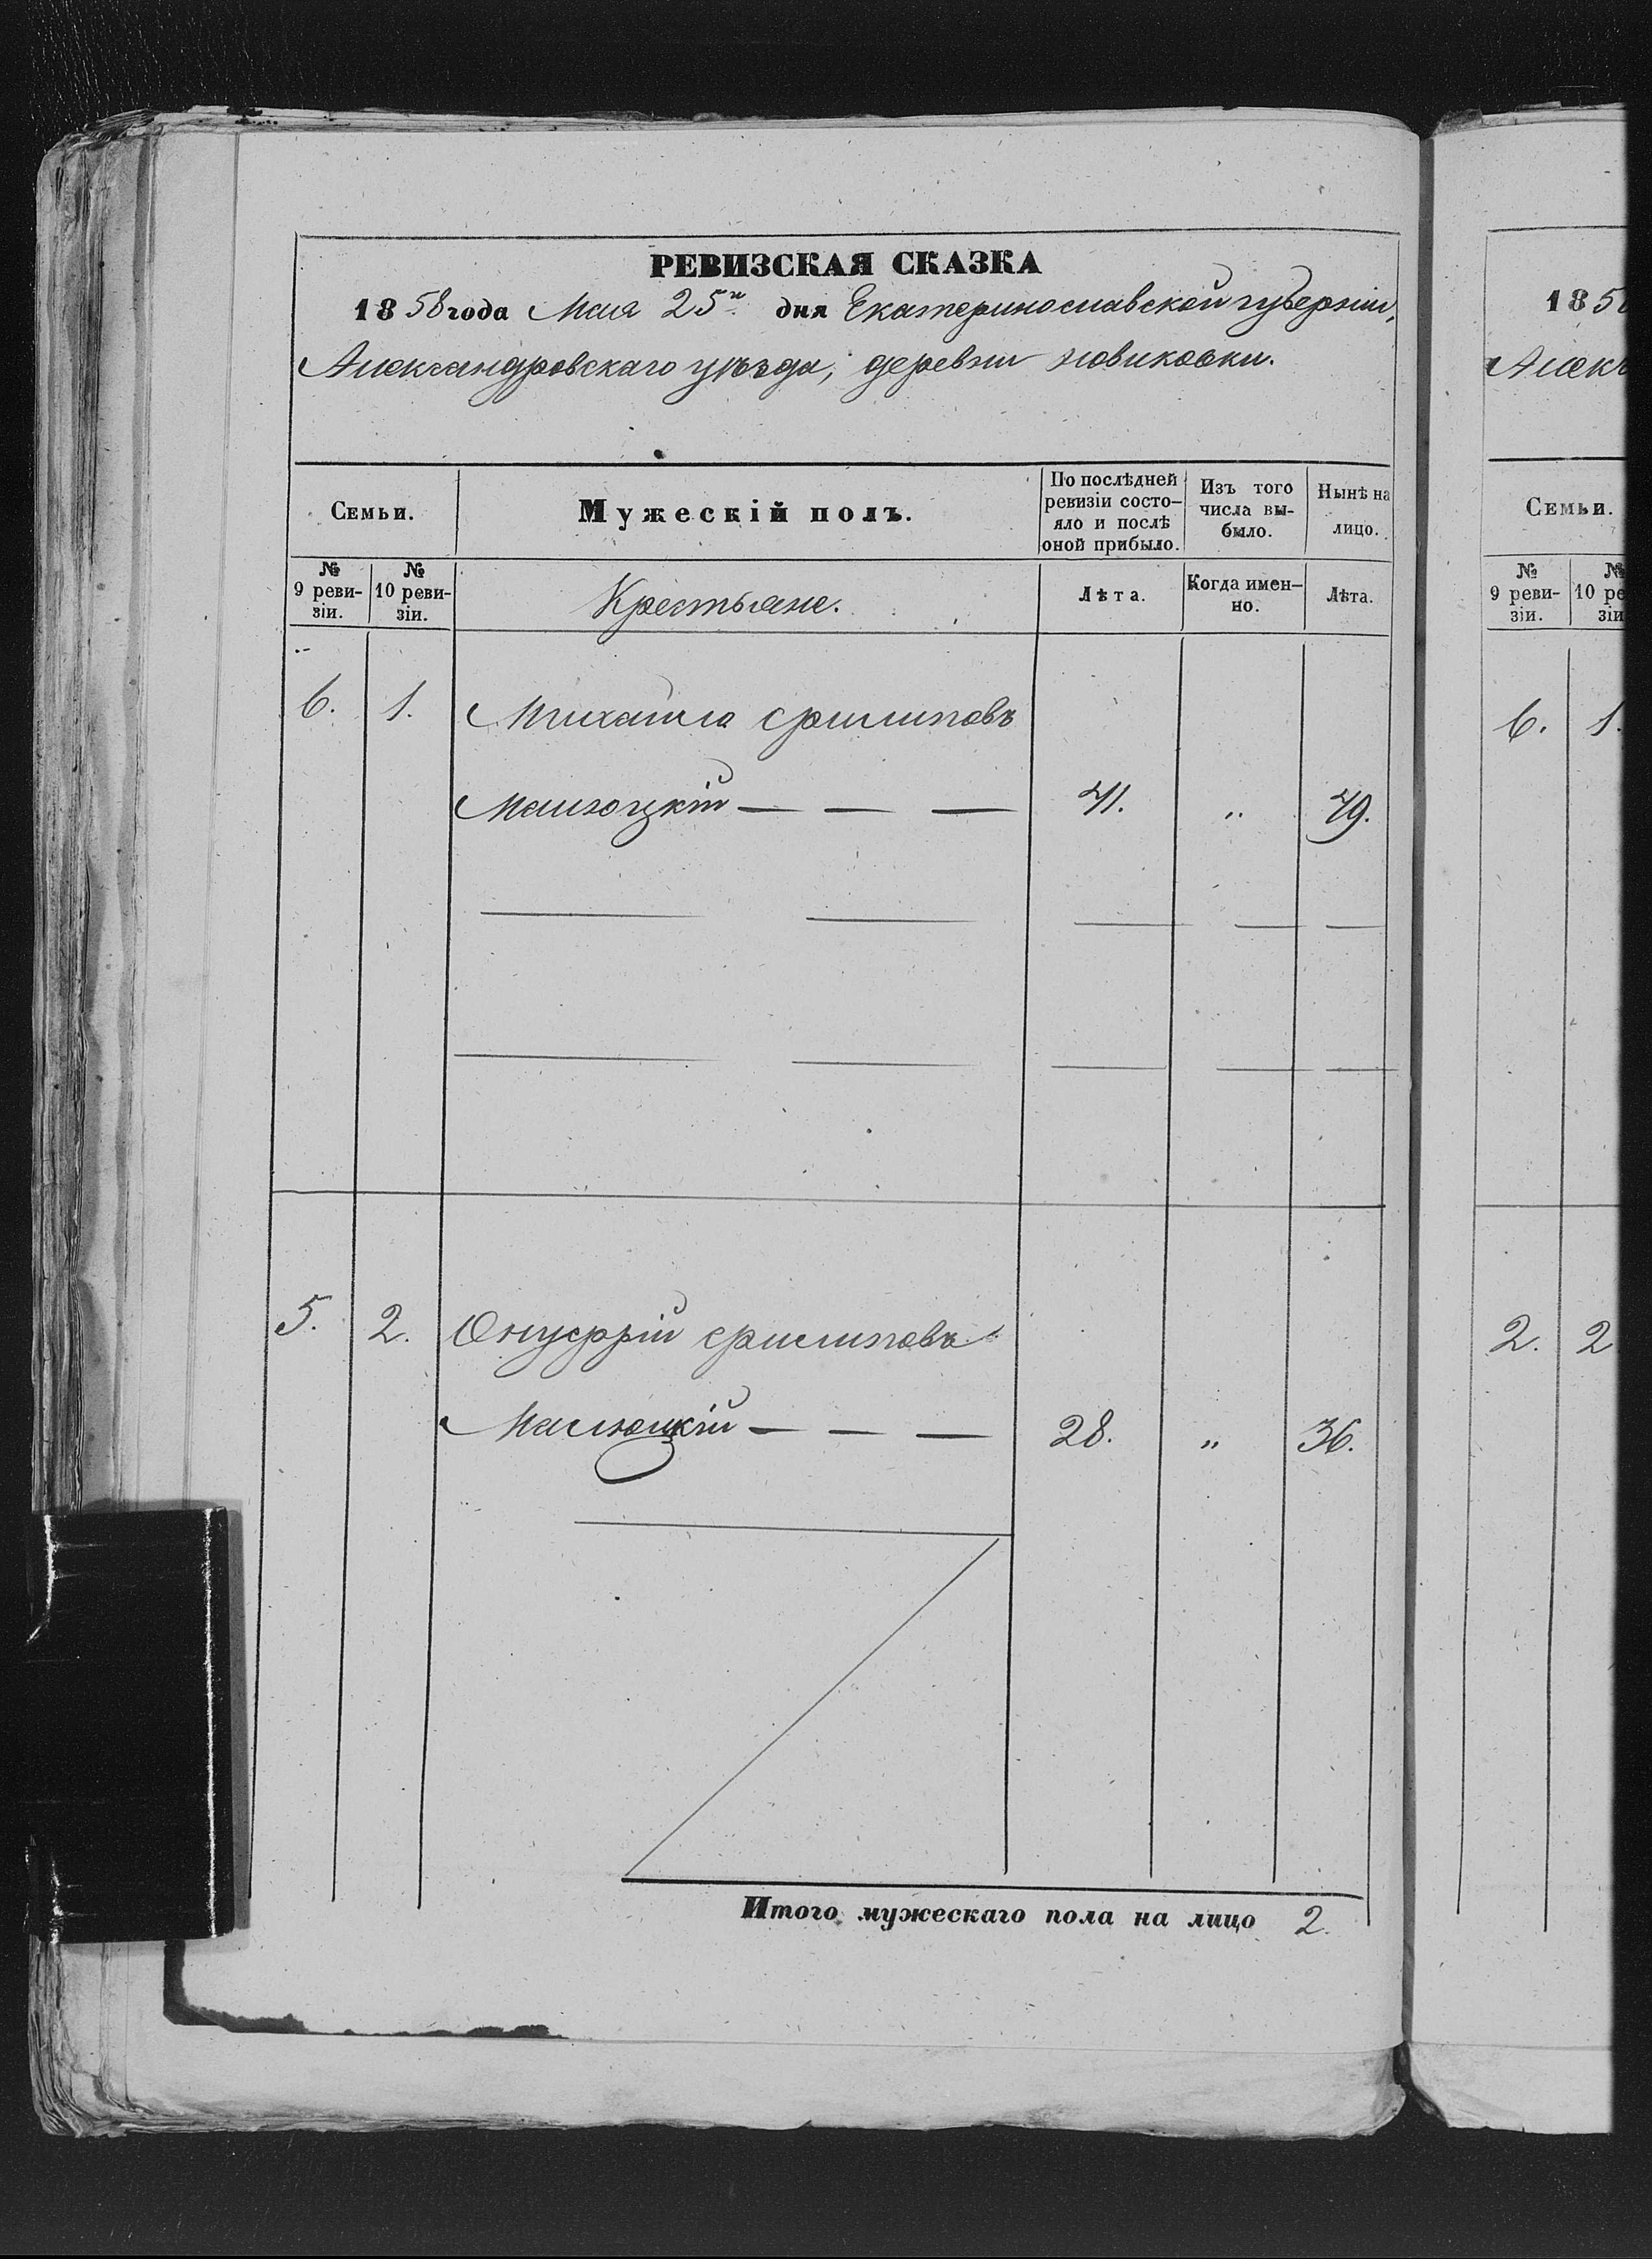 РЕВИЗСКАЯ СКАЗКА
1858 года Мая 25го дня Екатеринославской губерніи,
Александровскаго уѣзда, деревни Новиковки.
Семьи.
Мужескій полъ.
По послѣдней
ревизіи состо-
яло и послѣ
оной прибыло.
Изъ того
числа вы-
было.
Нынѣ на
лицо.
№
9 реви-
зіи.
№
10 реви-
зіи.
Крестьяне.
Лѣта.
Когда имен-
но.
Лѣта.
6. 1. Михайла Филиповъ
Малюцкій — — — 41. " 49.
5. 2. Онуфрій Филиповъ
Малюцкій — — — 28. " 36.
Итого мужескаго пола на лицо 2.
185
Алек
Семьи.
№
9 реви-
зіи.
№
10 ре
зіи
6. 1.
2. 2